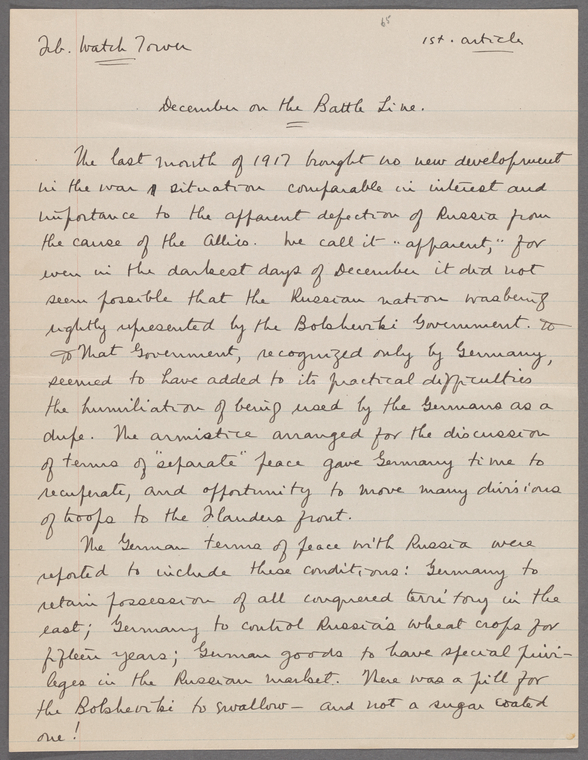 65
Feb. Watch Tower
1st. article
December on the Battle Line.
The last month of 1917 brought no new development
in the war situation comparable in interest and
importance to the apparent defection of Russia from
the cause of the Allies. We call it "apparent," for
even in the darkest days of December it did not
seem possible that the Russian nation was being
rightly represented by the Bolsheviki Government. To
To that Government, recognized only by Germany,
seemed to have added to its practical difficulties
the humiliation of being used by the Germans as a
dupe. The armistice arranged for the discussion
of terms of "separate" peace gave Germany time to
recuperate, and opportunity to move many divisions
of troops to the Flanders front.
The German terms of peace with Russia were
reported to include these conditions: Germany to
retain possession of all conquered territory in the
east; Germany to control Russia's wheat crops for
fifteen years; German goods to have special privi-
leges in the Russian market. Here was a pill for
the Bolsheviki to swallow – and not a sugar coated
one!